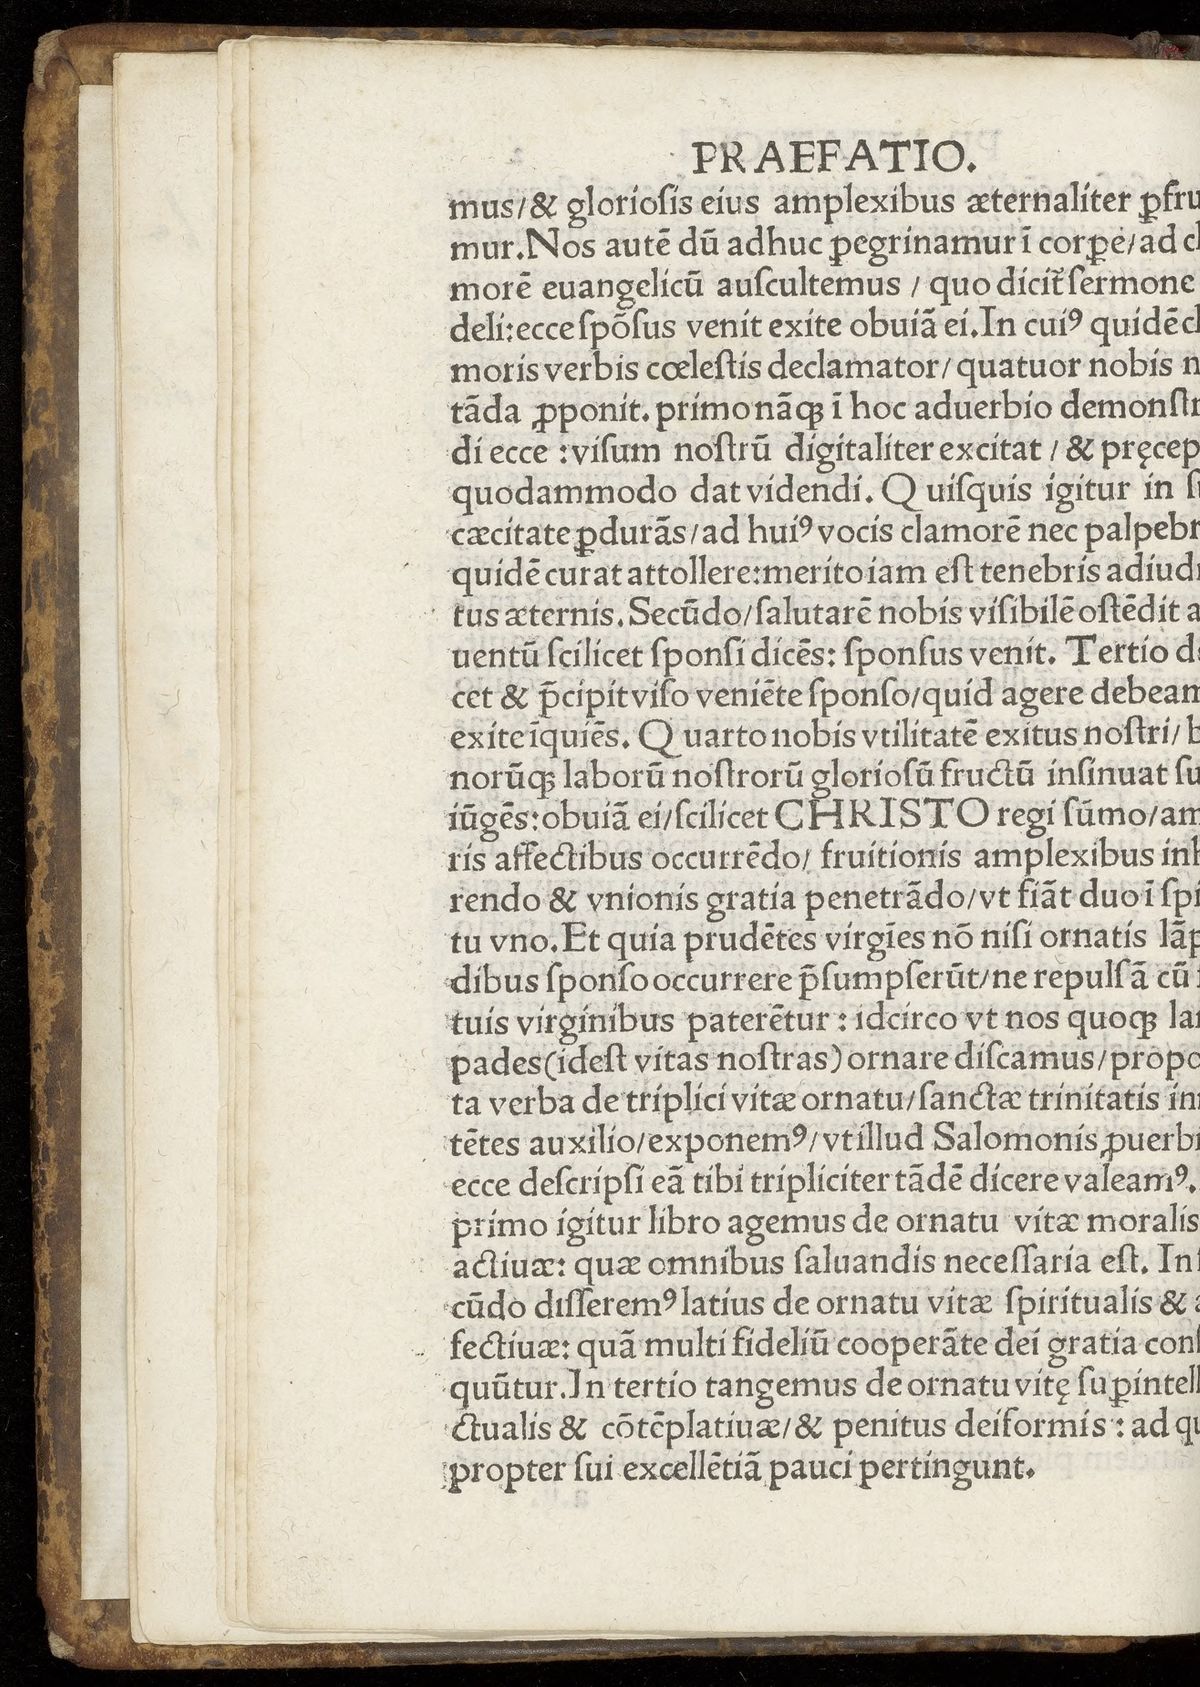 PRAEFATIO.
mus/& gloriosis eius amplexibus æternaliter ꝑfru
mur.Nos autē dū adhuc ꝑegrinamur ī corꝑe/ad cl
morē euangelicū auscultemus / quo dicit᷑ sermone
deli:ecce spōsus venit exite obuiā ei.In cuiꝰ quidē cl
moris verbis cœlestis declamator/quatuor nobis n
tāda ꝓponit. primo nāqꝫ ī hoc aduerbio demonstr
di ecce :visum nostrū digitaliter excitat / & pręcep
quodammodo dat videndi. Quisquis igitur in su
cæcitate ꝑdurās/ad huiꝰ vocis clamorē nec palpebr
quidē curat attollere:merito iam est tenebris adiudi
tus æternis.Secūdo/salutarē nobis visibilē ostēdit a
uentū scilicet sponsi dicēs: sponsus venit. Tertio do
cet & p̄cipit viso veniēte sponso/quid agere debeam
exite īquiēs. Quarto nobis vtilitatē exitus nostri/b
norūqꝫ laborū nostrorū gloriosū fructū insinuat su
iūgēs:obuiā ei/scilicet CHRISTO regi sūmo/am
ris affectibus occurrēdo/ fruitionis amplexibus inh
rendo & vnionis gratia penetrādo/vt fiāt duo ī spi
tu vno.Et quia prudētes virgīes nō nisi ornatis lāp
dibus sponso occurrere p̄sumpserūt/ne repulsā cū f
tuis virginibus paterētur : idcirco vt nos quoqꝫ lam
pades(idest vitas nostras)ornare discamus/propo
ta verba de triplici vitæ ornatu/sanctæ trinitatis in
tētes auxilio/exponemꝰ/vt illud Salomonis ꝓuerbi
ecce descripsi eā tibi tripliciter tādē dicere valeamꝰ.
primo igitur libro agemus de ornatu vitæ moralis
actiuæ: quæ omnibus saluandis necessaria est. In s
cūdo disseremꝰ latius de ornatu vitæ spiritualis & a
fectiuæ: quā multi fideliū cooperāte dei gratia cons
quūtur.In tertio tangemus de ornatu vitę suꝑintell
ctualis & cōtēplatiuæ/& penitus deiformis : ad qu
propter sui excellētiā pauci pertingunt.